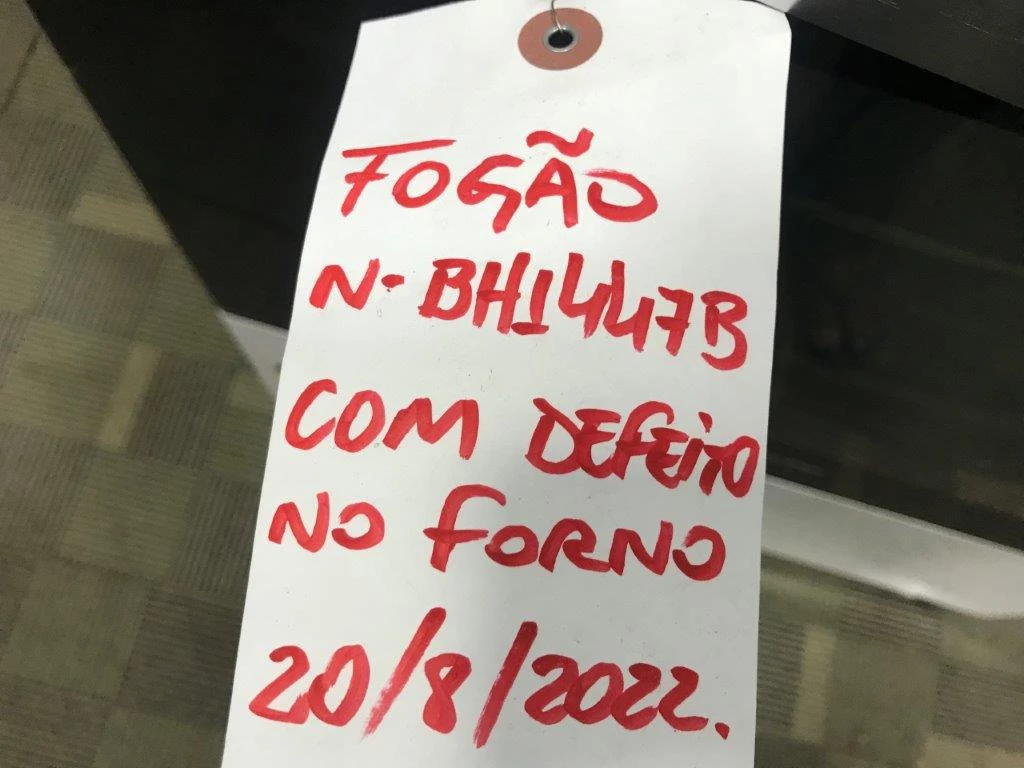 FOGÃO
N- BH1447B
COM DEFEITO
NO FORNO
20/8/2022.